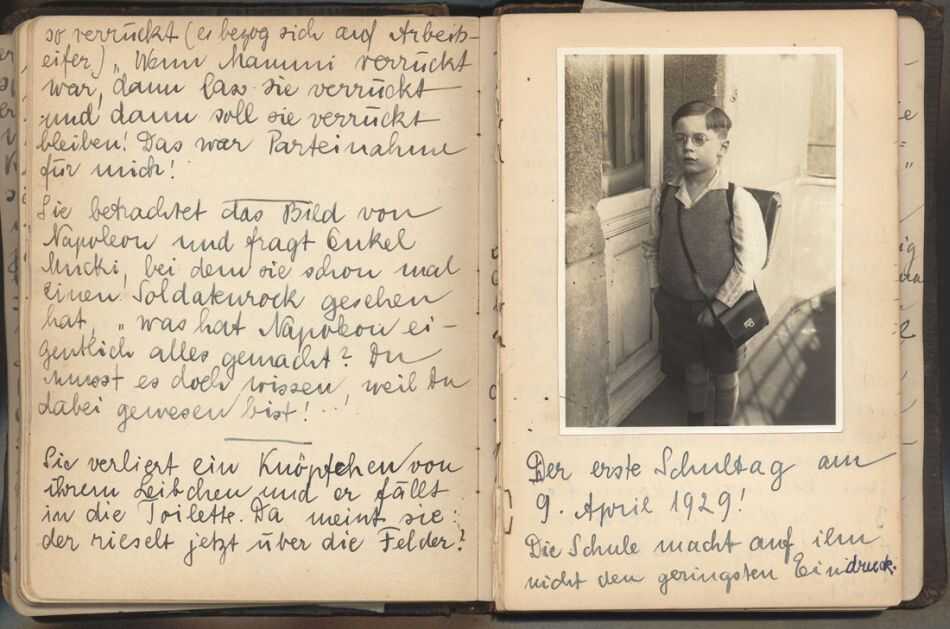 so verrückt (es bezog sich auf Arbeits-
eifer) „Wenn Mammi verrückt
war, dann lass sie verrückt
und dann soll sie verrückt
bleiben! Das war Parteinahme
für mich!
Sie betrachtet das Bild von
Napoleon und fragt Enkel
Mucki, bei dem sie schon mal
einen Soldatenrock gesehen
hat, „was hat Napoleon ei-
gentlich alles gemacht? Du
musst es doch wissen, weil Du
dabei gewesen bist!"
Sie verliert ein Knöpfchen von
ihrem Leibchen und er fällt
in die Toilette. Da meint sie:
der rieselt jetzt über die Felder?
Der erste Schultag am
9. April 1929!
Die Schule macht auf ihn
nicht den geringsten Eindruck.